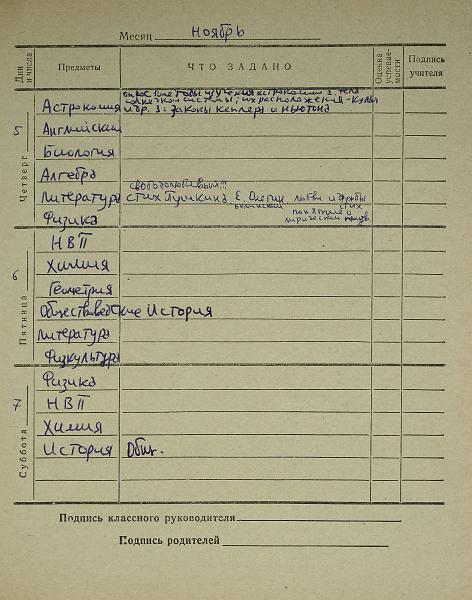 Месяц ноябрь
Дни и числа Предметы ЧТО ЗАДАНО Оценка успевае-мости Подпись учителя
Четверг 5
Астрономия
солнечной системы, их расположение
Законы Кеплера и Ньютона
Английский
Биология
Алгебра
свободолюбивым!!!
Литература стих Пушкина Е. Онегин любви и дружбы
понятие о
лирический
Физика
Пятница 6
НВП
Химия
Геометрия
Обществоведение История
Литература
Физкультура
Суббота 7
Физика
НВП
Химия
История Общ.
Подпись классного руководителя
Подпись родителей